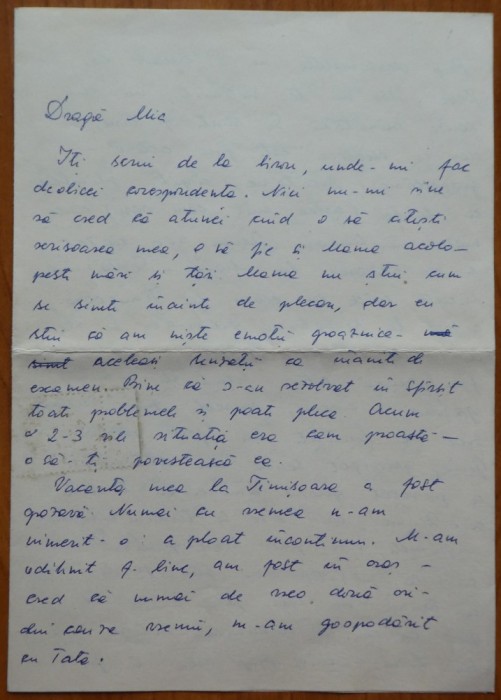 Dragă Mic
Îți scriu de la birou, unde-mi fac
deobicei corespondența. Nici nu-mi vine
să cred că atunci cînd o să citești
scrisoarea mea, o să fie și Mama acolo-
peste mări și țări Mama nu știu cum
se simte înainte de plecare, dar eu
știu că am niște emoții groaznice-
aceleași senzații ca înainte de
examen. Bine că s-au rezolvat în sfîrșit
toate problemele și poate pleca. Acum
2-3 zile situația era cam proastă-
o să-ți povestească ea.
Vacanța mea la Timișoara a fost
grozavă. Numai cu vremea n-am
nimerit-o: a ploat încontinuu. M-am
odihnit f. bine, am fost în oraș-
cred că numai de vreo două ori-
din cauza vremii, m-am gospodărit
cu Tata.